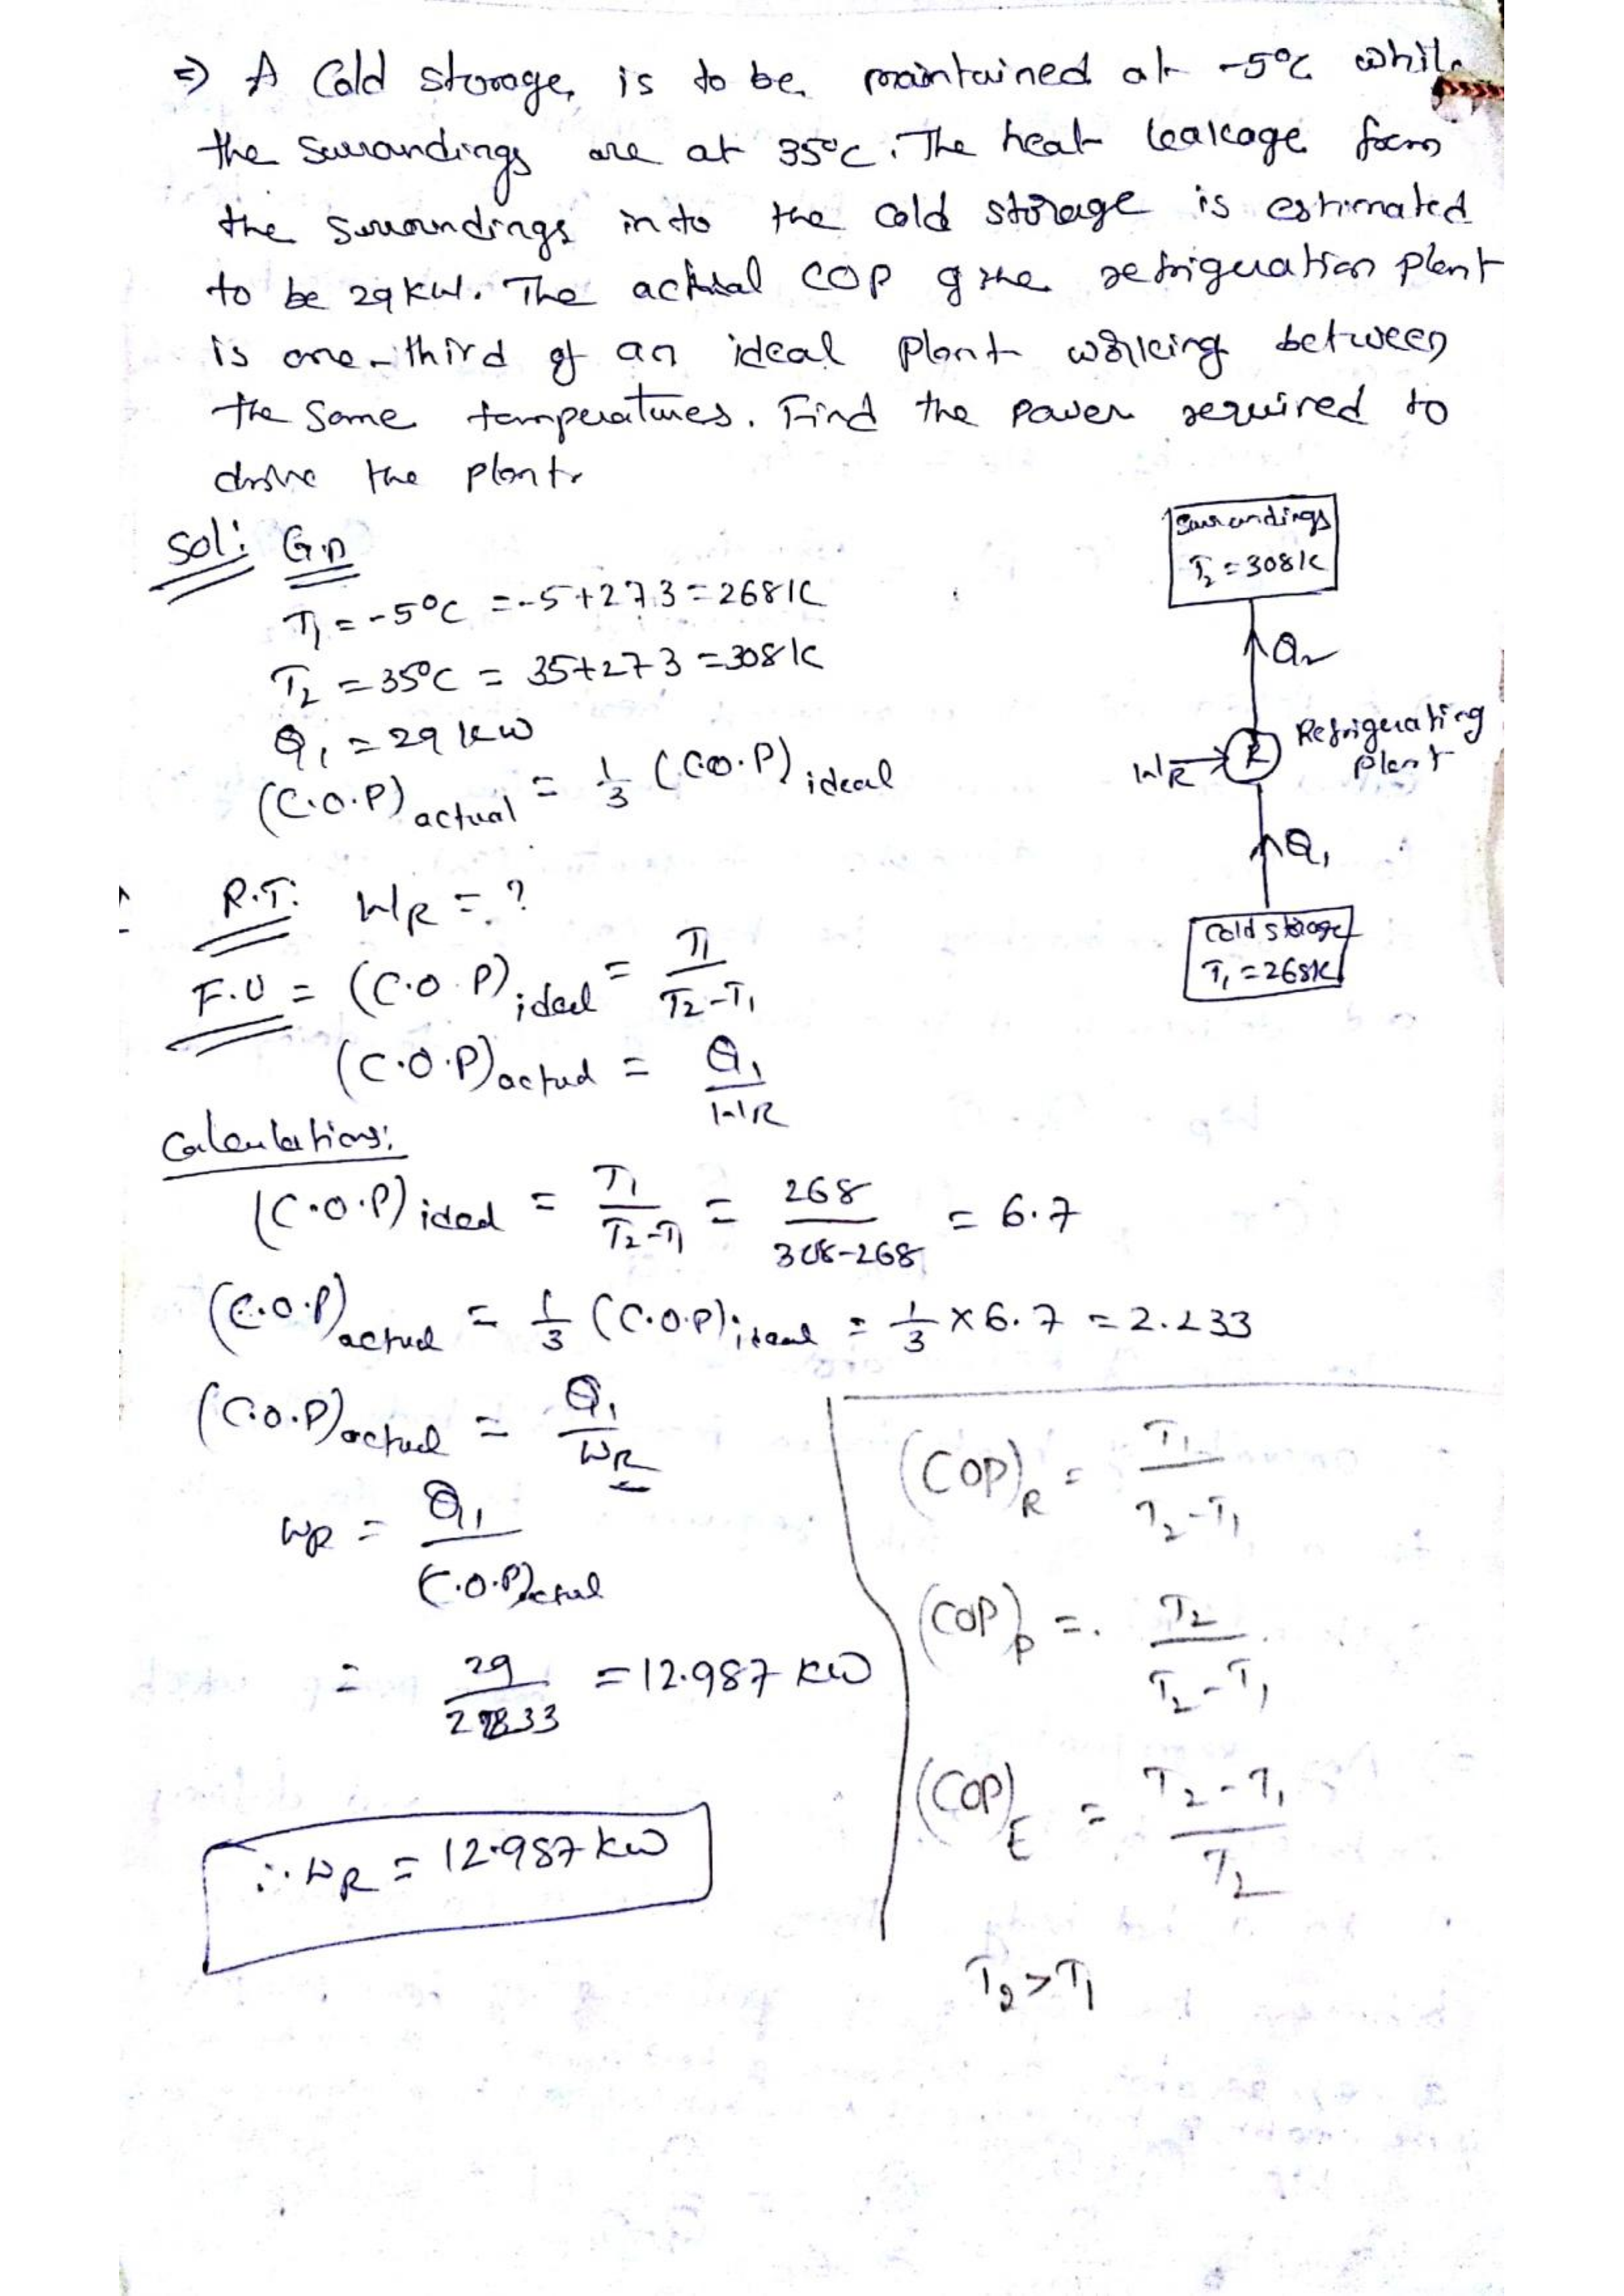 => A Cold storage, is to be maintained at -5°C while
the surroundings are at 35°C. The heat leakage from
the surroundings into the cold storage is estimated
to be 29 kW. The actual COP of the refrigeration plant
is one-third of an ideal plant working between
the same temperatures. Find the power required to
drive the plant.
Sol: G.D
T₁ = -5°C = -5+273 = 268K
T₂ = 35°C = 35+273 = 308K
Q₁ = 29 kW
(C.O.P) actual = 1/3 (C.O.P) ideal
Surroundings
T₂ = 308K
Q₂
WR
R
Refrigerating
plant
Q₁
Cold storage
T₁ = 268K
R.T: WR = ?
F.U = (C.O.P) ideal = T₁/(T₂-T₁)
(C.O.P) actual = Q₁/WR
Calculations:
(C.O.P) ideal = T₁/(T₂-T₁) = 268/(308-268) = 6.7
(C.O.P) actual = 1/3 (C.O.P) ideal = 1/3 × 6.7 = 2.233
(C.O.P) actual = Q₁/WR
WR = Q₁/(C.O.P) actual
= 29/2.233 = 12.987 kW
∴ WR = 12.987 kW
(COP)R = T₁/(T₂-T₁)
(COP)P = T₂/(T₂-T₁)
(COP)E = (T₂-T₁)/T₂
T₂ > T₁